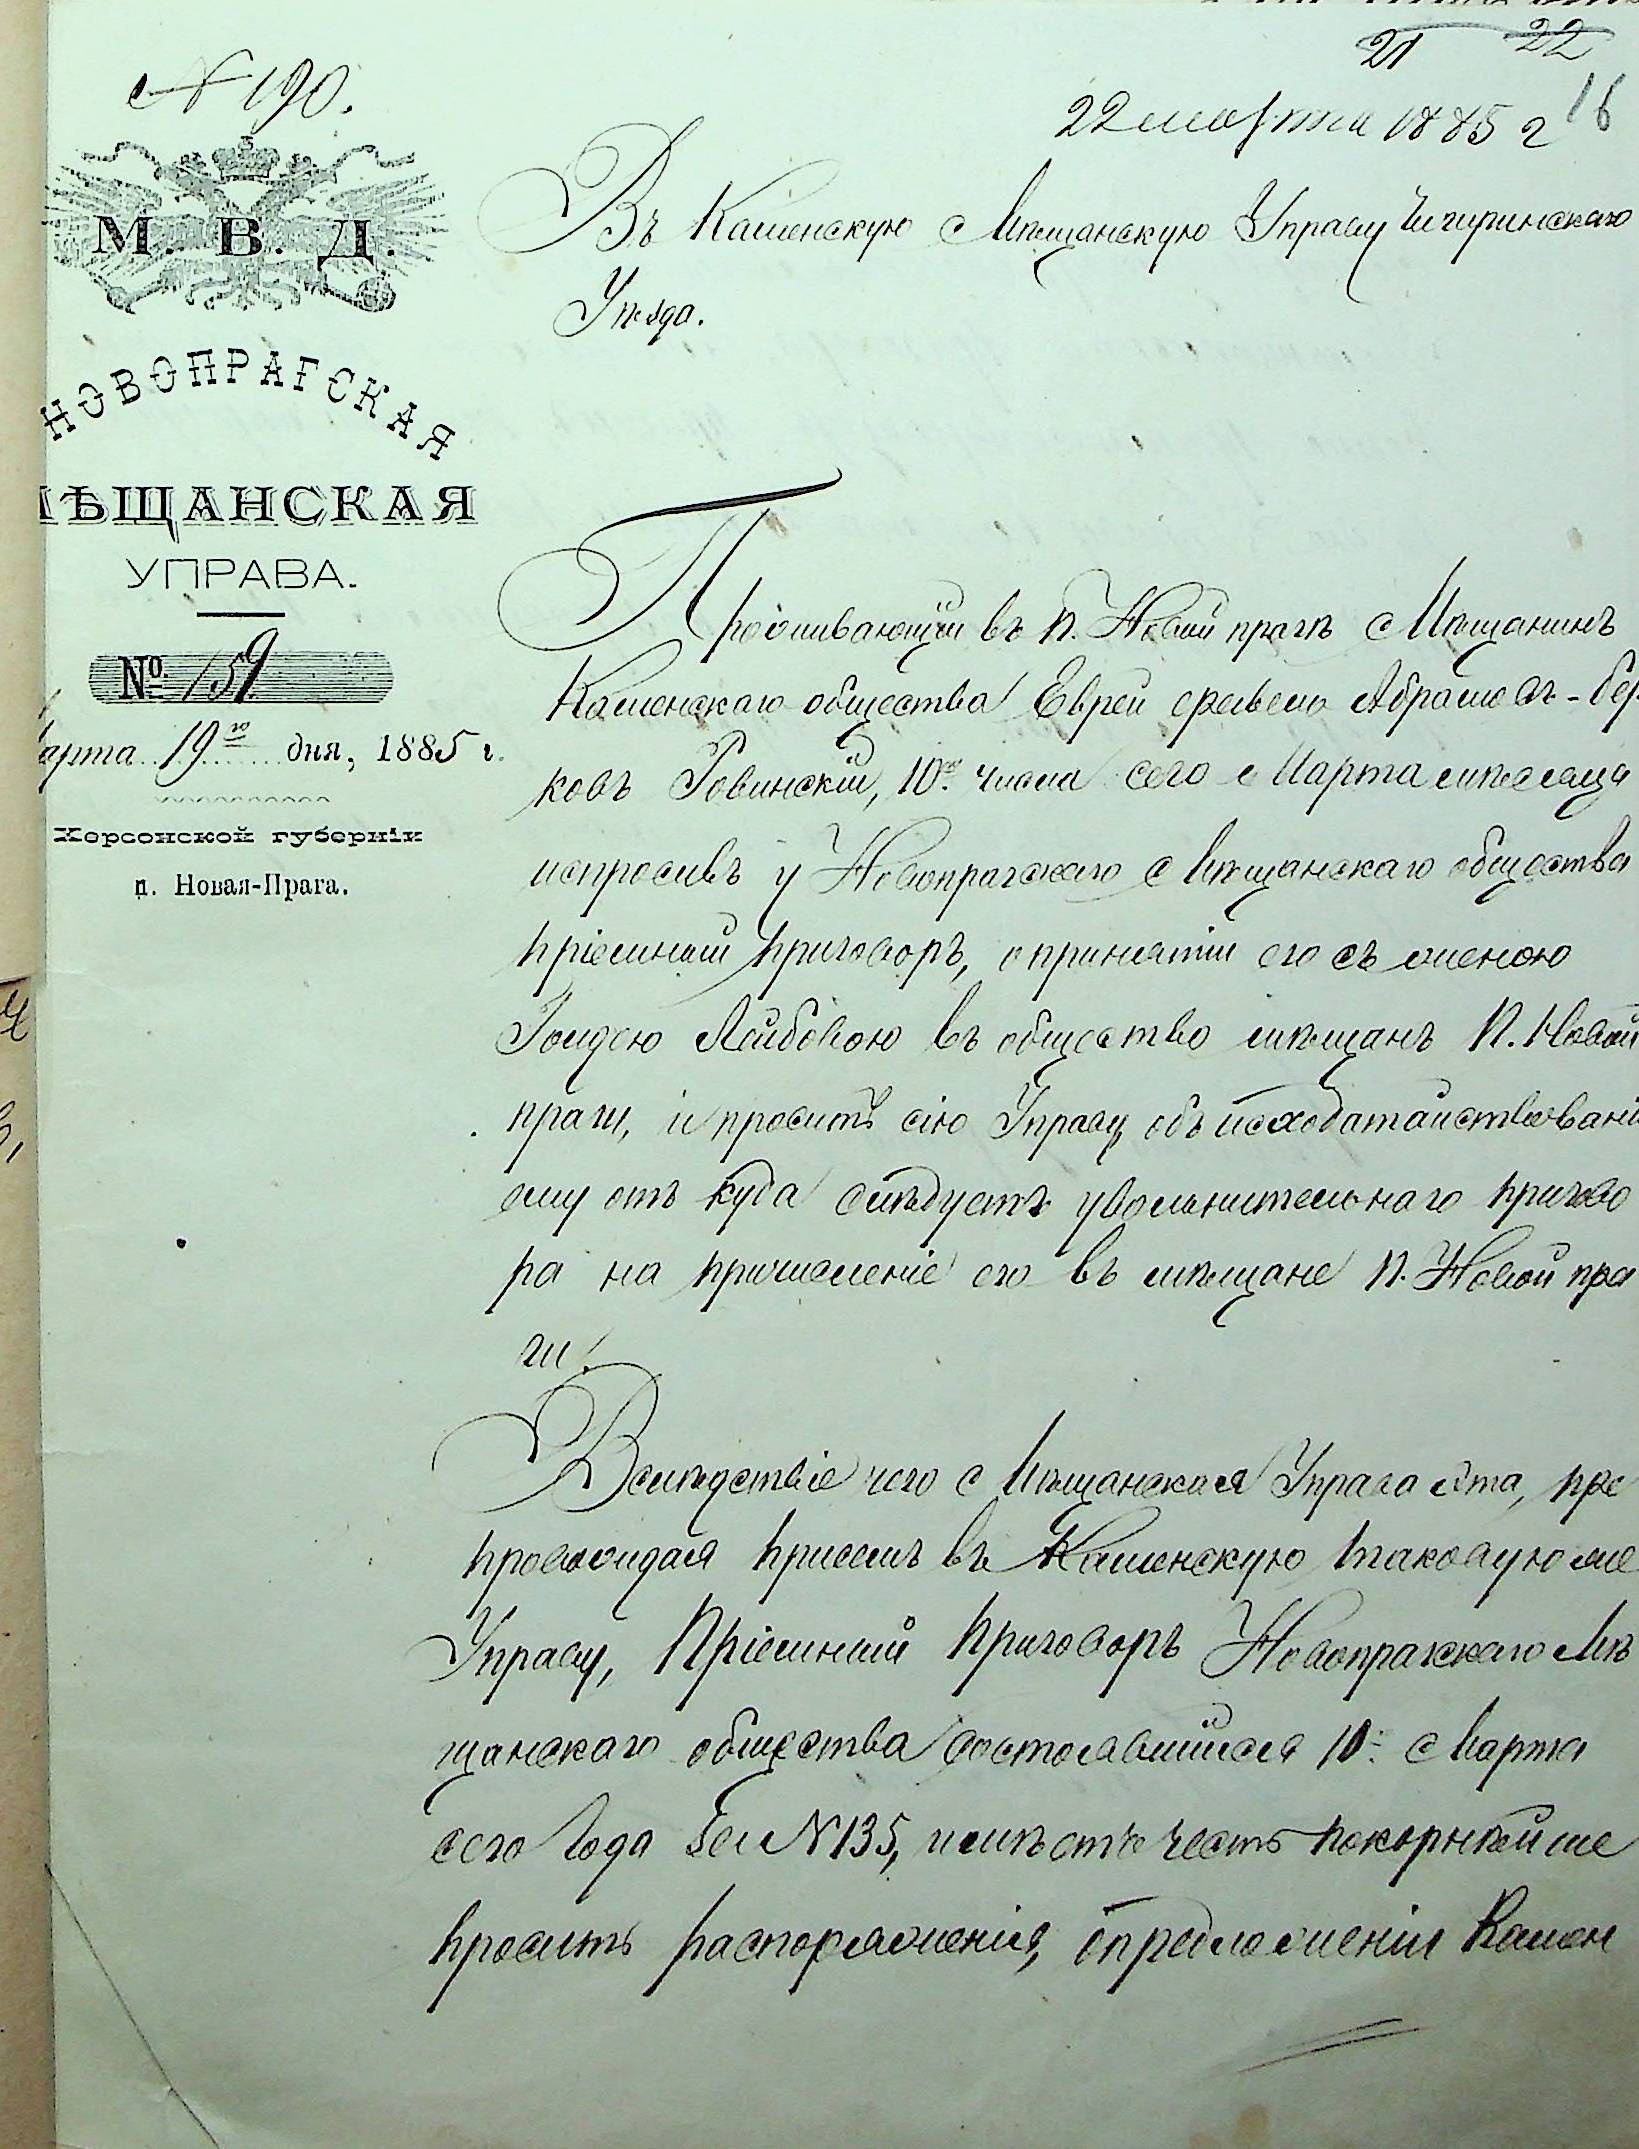 21 22
№ 190.
22 марта 1885 г 16
М. В. Д.
НОВОПРАГСКАЯ
МѢЩАНСКАЯ
УПРАВА.
№ 159
арта 19го дня, 1885 г.
Херсонской губерніи
п. Новая-Прага.
Въ Каменскую Мѣщанскую Управу Чигиринскаго
Уѣзда.
Проживающій въ п. Новой прагѣ Мѣщанинъ
Каменскаго общества Еврей Абрамовъ-Бер
ковъ Ровинскій, 10го числа сего Марта мѣсяца
испросивъ у Новопрагскаго Мѣщанскаго общества
пріемный приговоръ, о принятіи его съ женою
Лейбовою въ общество мѣщанъ п. Новой
праги, и проситъ сію Управу объ исходатайствованіи
ему отъ куда слѣдуетъ увольнительнаго пригово
ра на причисленіе его въ мѣщане п. Новой пра
ги.
Вслѣдствіе чего Мѣщанская Управа эта, пре
провождая присемъ въ Каменскую таковую же
Управу, Пріемный приговоръ Новопрагскаго Мѣ
щанскаго общества состоявшійся 10го Марта
сего года за № 135, имѣетъ честь покорнѣйше
просить распоряженія, о предложеніи Камен